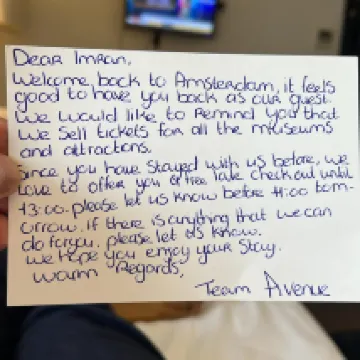 Dear Imran,
Welcome back to Amsterdam, it feels
good to have you back as our guest.
We would like to remind you that
we sell tickets for all the museums
and attractions.
Since you have stayed with us before, we
love to offer you a free late check out until
13:00. please let us know before 11:00 tom-
orrow. if there is anything that we can
do for you, please let us know.
we hope you enjoy your stay.
warm Regards,
Team Avenue